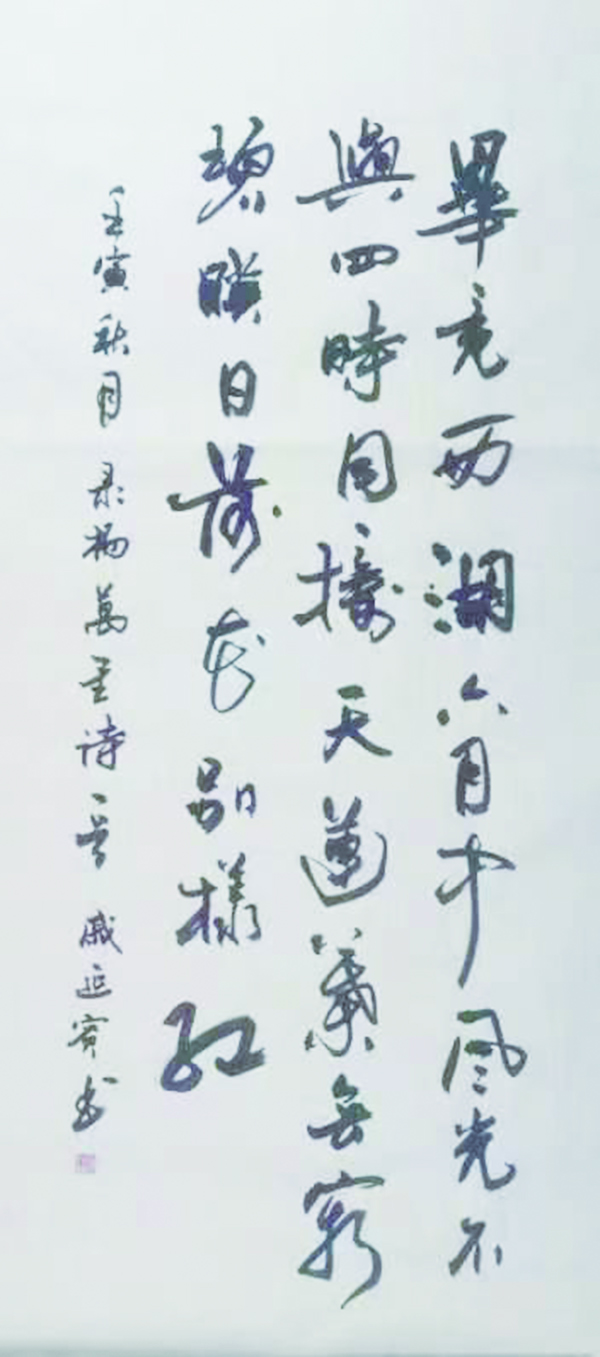 畢竟西湖六月中风光不
與四時同接天蓮葉無窮
碧暎日荷花别樣红
壬寅秋月 录杨萬里诗一首 戚延賓书